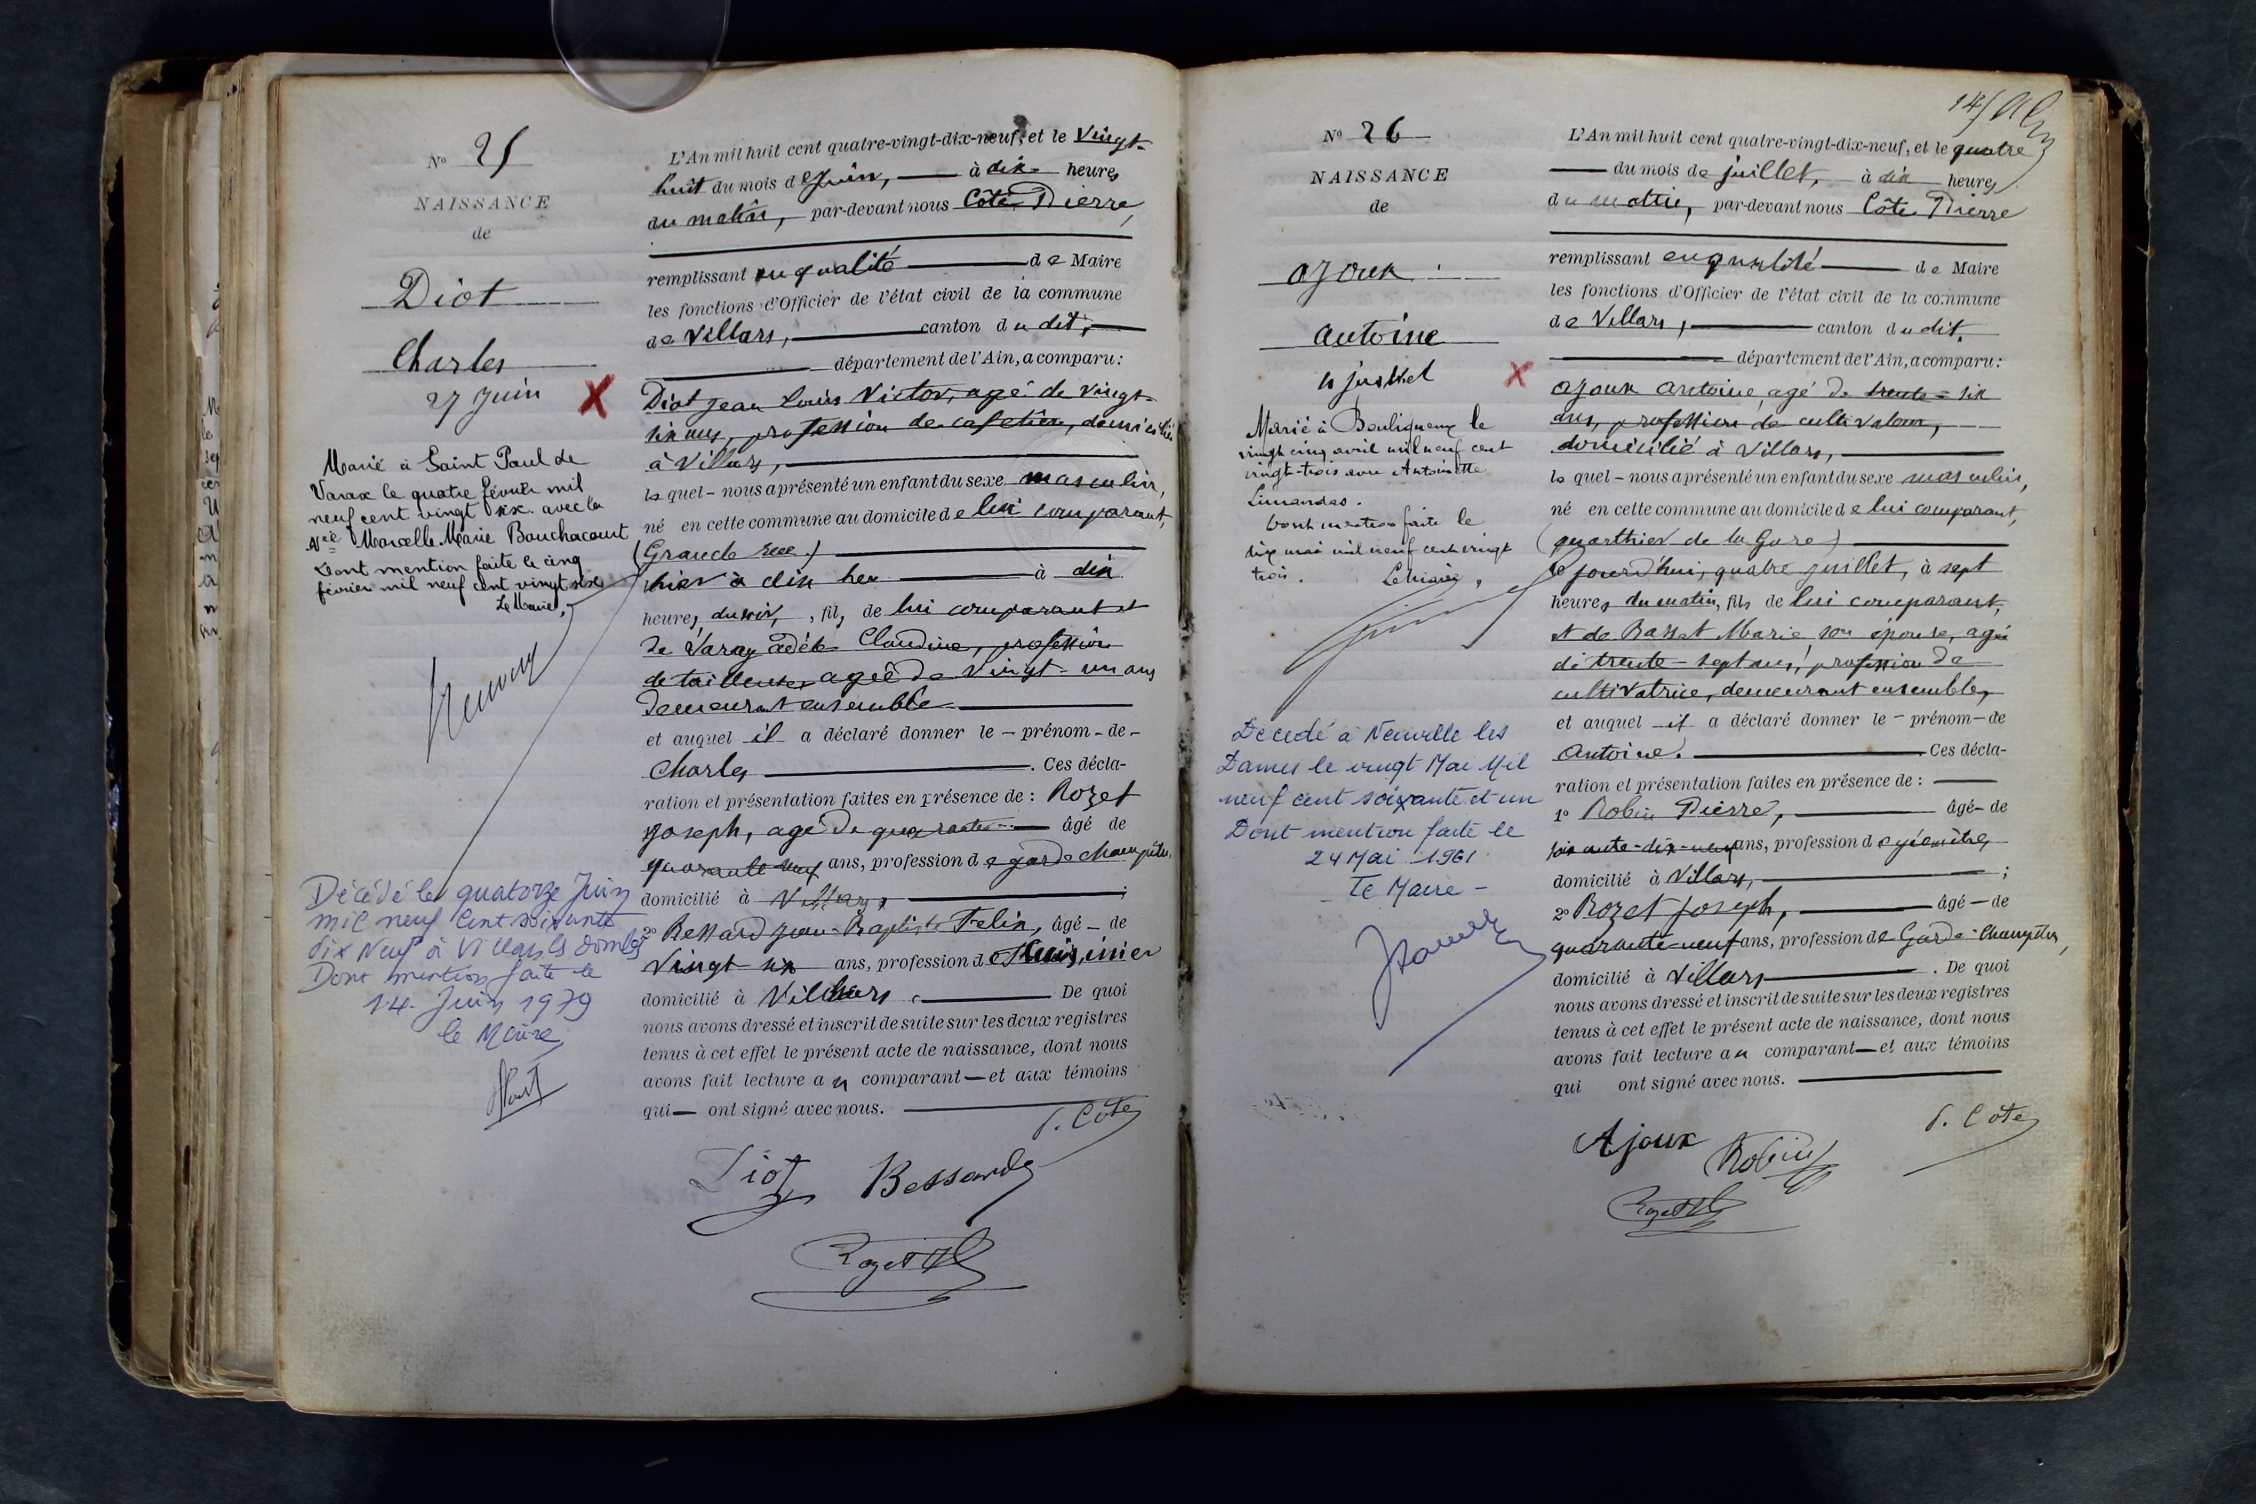 Nº 25
NAISSANCE
de
Diot
Charles
27 Juin
Marié à Saint Paul de
Varax le quatre février mil
neuf cent vingt six avec la
Née Marcelle Marie Bouchacourt
Dont mention faite le cinq
février mil neuf cent vingt six
Le Maire,
Décédé le quatorze Juin
mil neuf cent soixante
dix Neuf à Villars les dombes
Dont mention faite le
14 Juin 1979
le Maire
L'An mil huit cent quatre-vingt-dix-neuf, et le Vingt-
huit du mois de Juin, à dix heures
du matin, par-devant nous Côte Pierre,
remplissant en qualité de Maire
les fonctions d'Officier de l'état civil de la commune
de Villars, canton du dit,
département de l'Ain, a comparu:
Diot Jean Louis Victor, agé de vingt-
six ans, profession de cafetier, domicilié
à Villars,
lequel nous a présenté un enfant du sexe masculin,
né en cette commune au domicile de lui comparant,
(Grande rue)
hier à dix heu à dix
heures du soir, fils de lui comparant et
de Varay Adèle Claudine, profession
de tailleuse, agée de vingt-un ans
demeurant ensemble
et auquel il a déclaré donner le prénom de
Charles. Ces décla-
ration et présentation faites en présence de: Rozet
Joseph, agé de quarante âgé de
quarante neuf ans, profession de garde champêtre,
domicilié à Villars,;
2º Bessard Jean-Baptiste Felix, âgé de
Vingt six ans, profession d
domicilié à Villars. De quoi
nous avons dressé et inscrit de suite sur les deux registres
tenus à cet effet le présent acte de naissance, dont nous
avons fait lecture au comparant et aux témoins
qui ont signé avec nous.
P. Côte
Diot Bessard
Rozet
14
Nº 26
NAISSANCE
de
Ajoux
Antoine
4 juillet
Marié à Bouligneux le
vingt cinq avril mil neuf cent
vingt-trois avec Antoinette
Limandas.
Dont mention faite le
dix mai mil neuf cent vingt
trois. Le Maire,
Décédé à Neuville les
Dames le vingt Mai Mil
neuf cent soixante et un
Dont mention faite le
24 Mai 1961
Le Maire
L'An mil huit cent quatre-vingt-dix-neuf, et le quatre
du mois de juillet, à dix heures
du matin, par-devant nous Côte Pierre
remplissant en qualité de Maire
les fonctions d'Officier de l'état civil de la commune
de Villars, canton du dit,
département de l'Ain, a comparu:
Ajoux Antoine, agé de trente-six
ans, profession de cultivateur,
domicilié à Villars,
lequel nous a présenté un enfant du sexe masculin,
né en cette commune au domicile de lui comparant,
(quarthier de la Gare)
ce jourd'hui, quatre juillet, à sept
heures du matin, fils de lui comparant,
et de Basset Marie, son épouse, agée
de trente-sept ans, profession de
cultivatrice, demeurant ensemble,
et auquel il a déclaré donner le prénom de
Antoine. Ces décla-
ration et présentation faites en présence de:
1º Robin Pierre, âgé de
soixante-dix-neuf ans, profession de géomètre,
domicilié à Villars,;
2º Rozet Joseph, âgé de
quarante-neuf ans, profession de Garde-Champêtre,
domicilié à Villars. De quoi
nous avons dressé et inscrit de suite sur les deux registres
tenus à cet effet le présent acte de naissance, dont nous
avons fait lecture au comparant et aux témoins
qui ont signé avec nous.
P. Côte
Ajoux Robin
Rozet